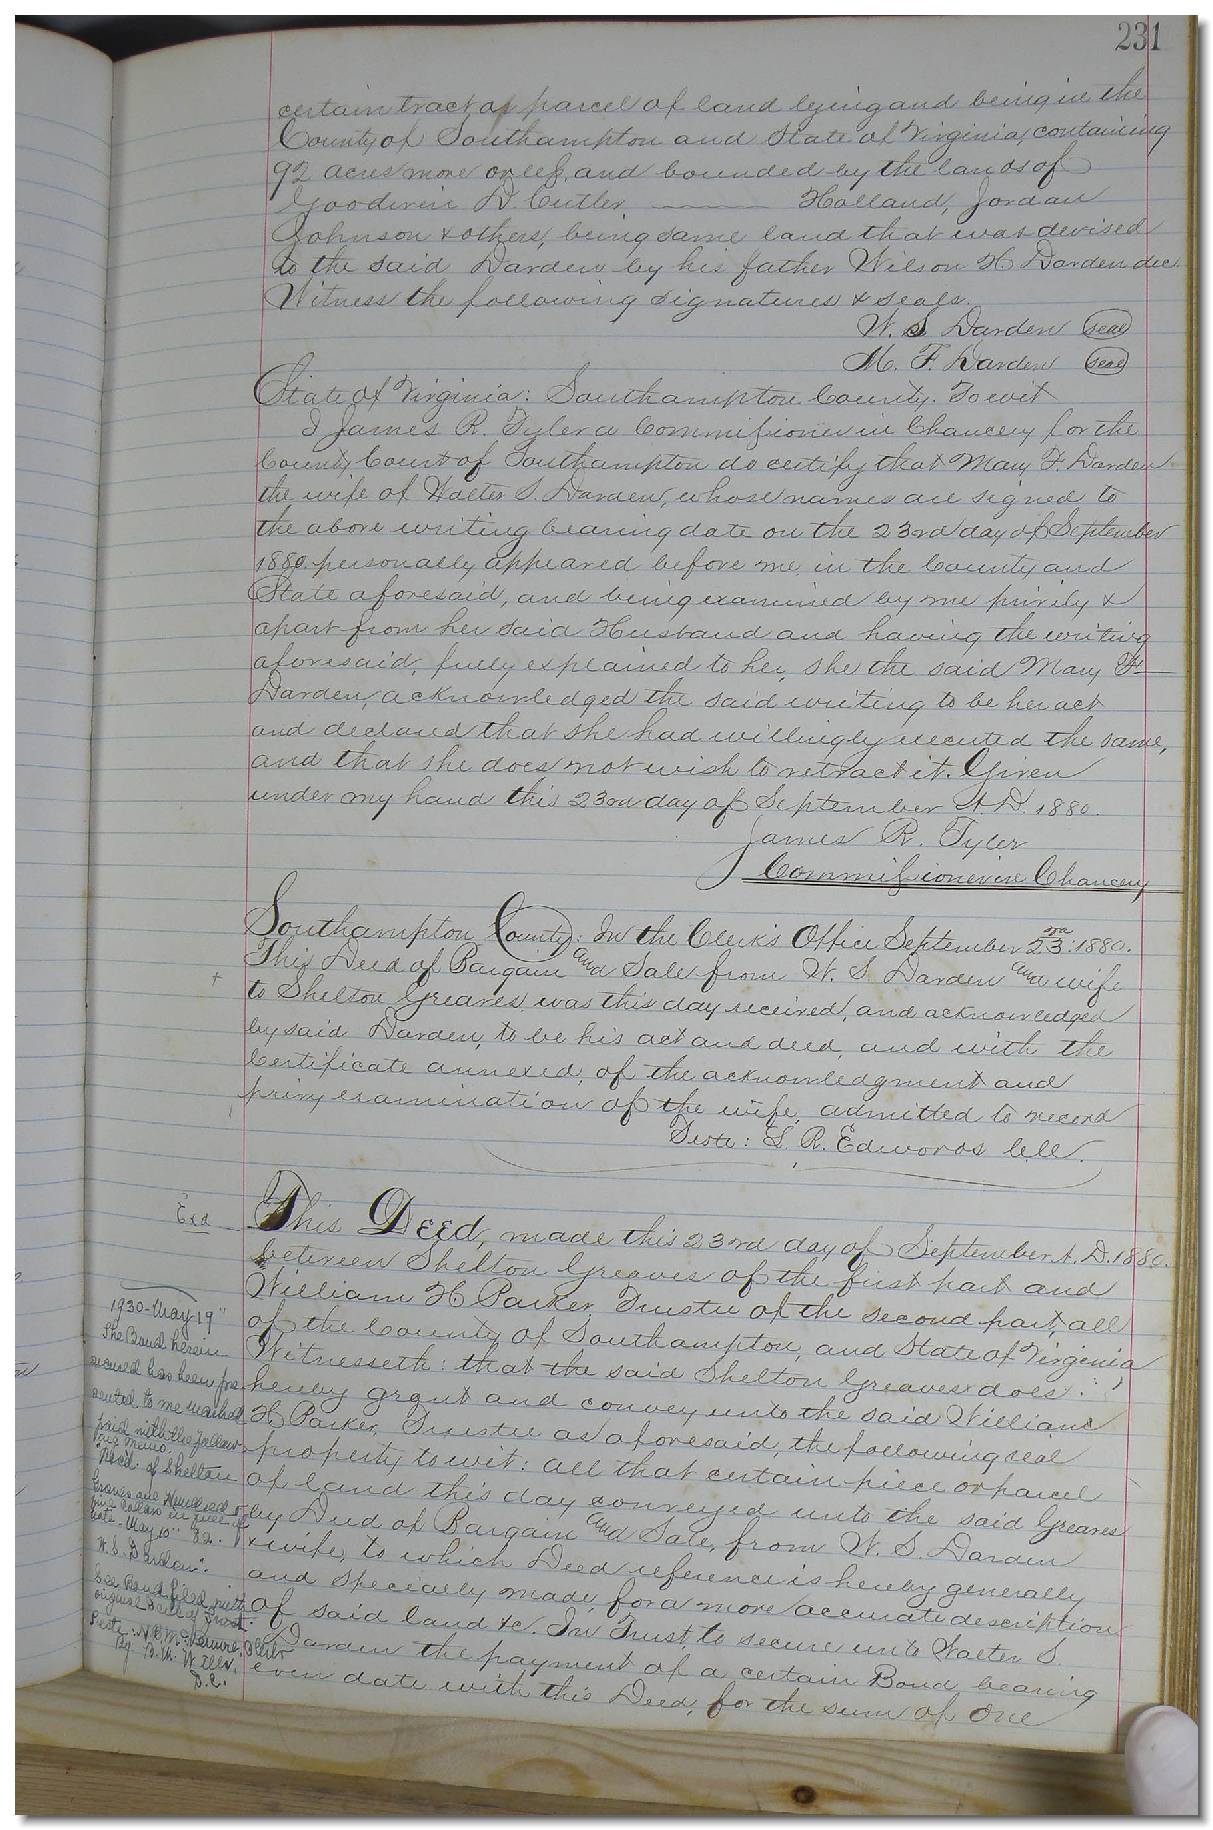 231
certain tract or parcel of land lying and being in the
County of Southampton and State of Virginia, containing
92 acres more or less, and bounded by the lands of
Goodwin D. Cutler, ——— Holland, Jordan
Johnson & others, being same land that was devised
to the said Darden by his father Wilson H Darden dec.
Witness the following signatures & seals.
W. S. Darden (seal)
M. F. Darden (seal)
State of Virginia: Southampton County. To wit
I James R. Tyler a Commissioner in Chancery for the
County Court of Southampton do certify that Mary F. Darden
the wife of Walter S. Darden, whose names are signed to
the above writing bearing date on the 23rd day of September
1880. personally appeared before me, in the County and
State aforesaid, and being examined by me privily &
apart from her said Husband and having the writing
aforesaid, fully explained to her, she the said Mary F.
Darden, acknowledged the said writing to be her act
and declared that she had willingly executed the same,
and that she does not wish to retract it. Given
under my hand this 23rd day of September A. D. 1880.
James R. Tyler
Commissioner in Chancery
Southampton County: In the Clerk's Office September 23rd: 1880.
This Deed of Bargain and Sale from W. S. Darden and wife
to Shelton Greaves, was this day received, and acknowledged
by said Darden, to be his act and deed, and with the
Certificate annexed, of the acknowledgment and
privy examination of the wife, admitted to record
Teste: L. R. Edwards Clk.
Exd
This Deed, made this 23rd day of September A. D. 1880.
between Shelton Greaves of the first part and
William H Parker, Trustee of the second part, all
of the County of Southampton, and State of Virginia
Witnesseth: that the said Shelton Greaves does
hereby grant and convey unto the said William
H Parker, Trustee as aforesaid, the following real
property, to wit: all that certain piece or parcel
of land this day conveyed unto the said Greaves
by Deed of Bargain and Sale, from W. S. Darden
& wife, to which Deed reference is hereby generally
and specially made, for a more accurate description
of said land &c. In Trust, to secure unto Walter S.
Darden the payment of a certain Bond bearing
even date with this Deed, for the sum of One
1930-May 19"
The Bond herein
secured has been pre
sented to me marked
paid with the follow-
ing memo.
"Recd. of Shelton
Greaves one Hundred &
dollars in full of
note- May 10" 82.
W. S. Darden".
See Bond filed with
original Deed of Trust.
Teste: H. B. McLemore, Clerk
By B. M. Wills.
D.C.